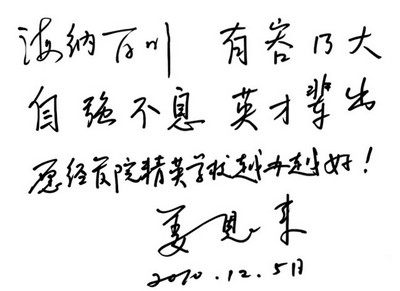 海纳百川 有容乃大
自强不息 英才辈出
愿经发院精英学校越办越好！
姜恩来
2010.12.5日